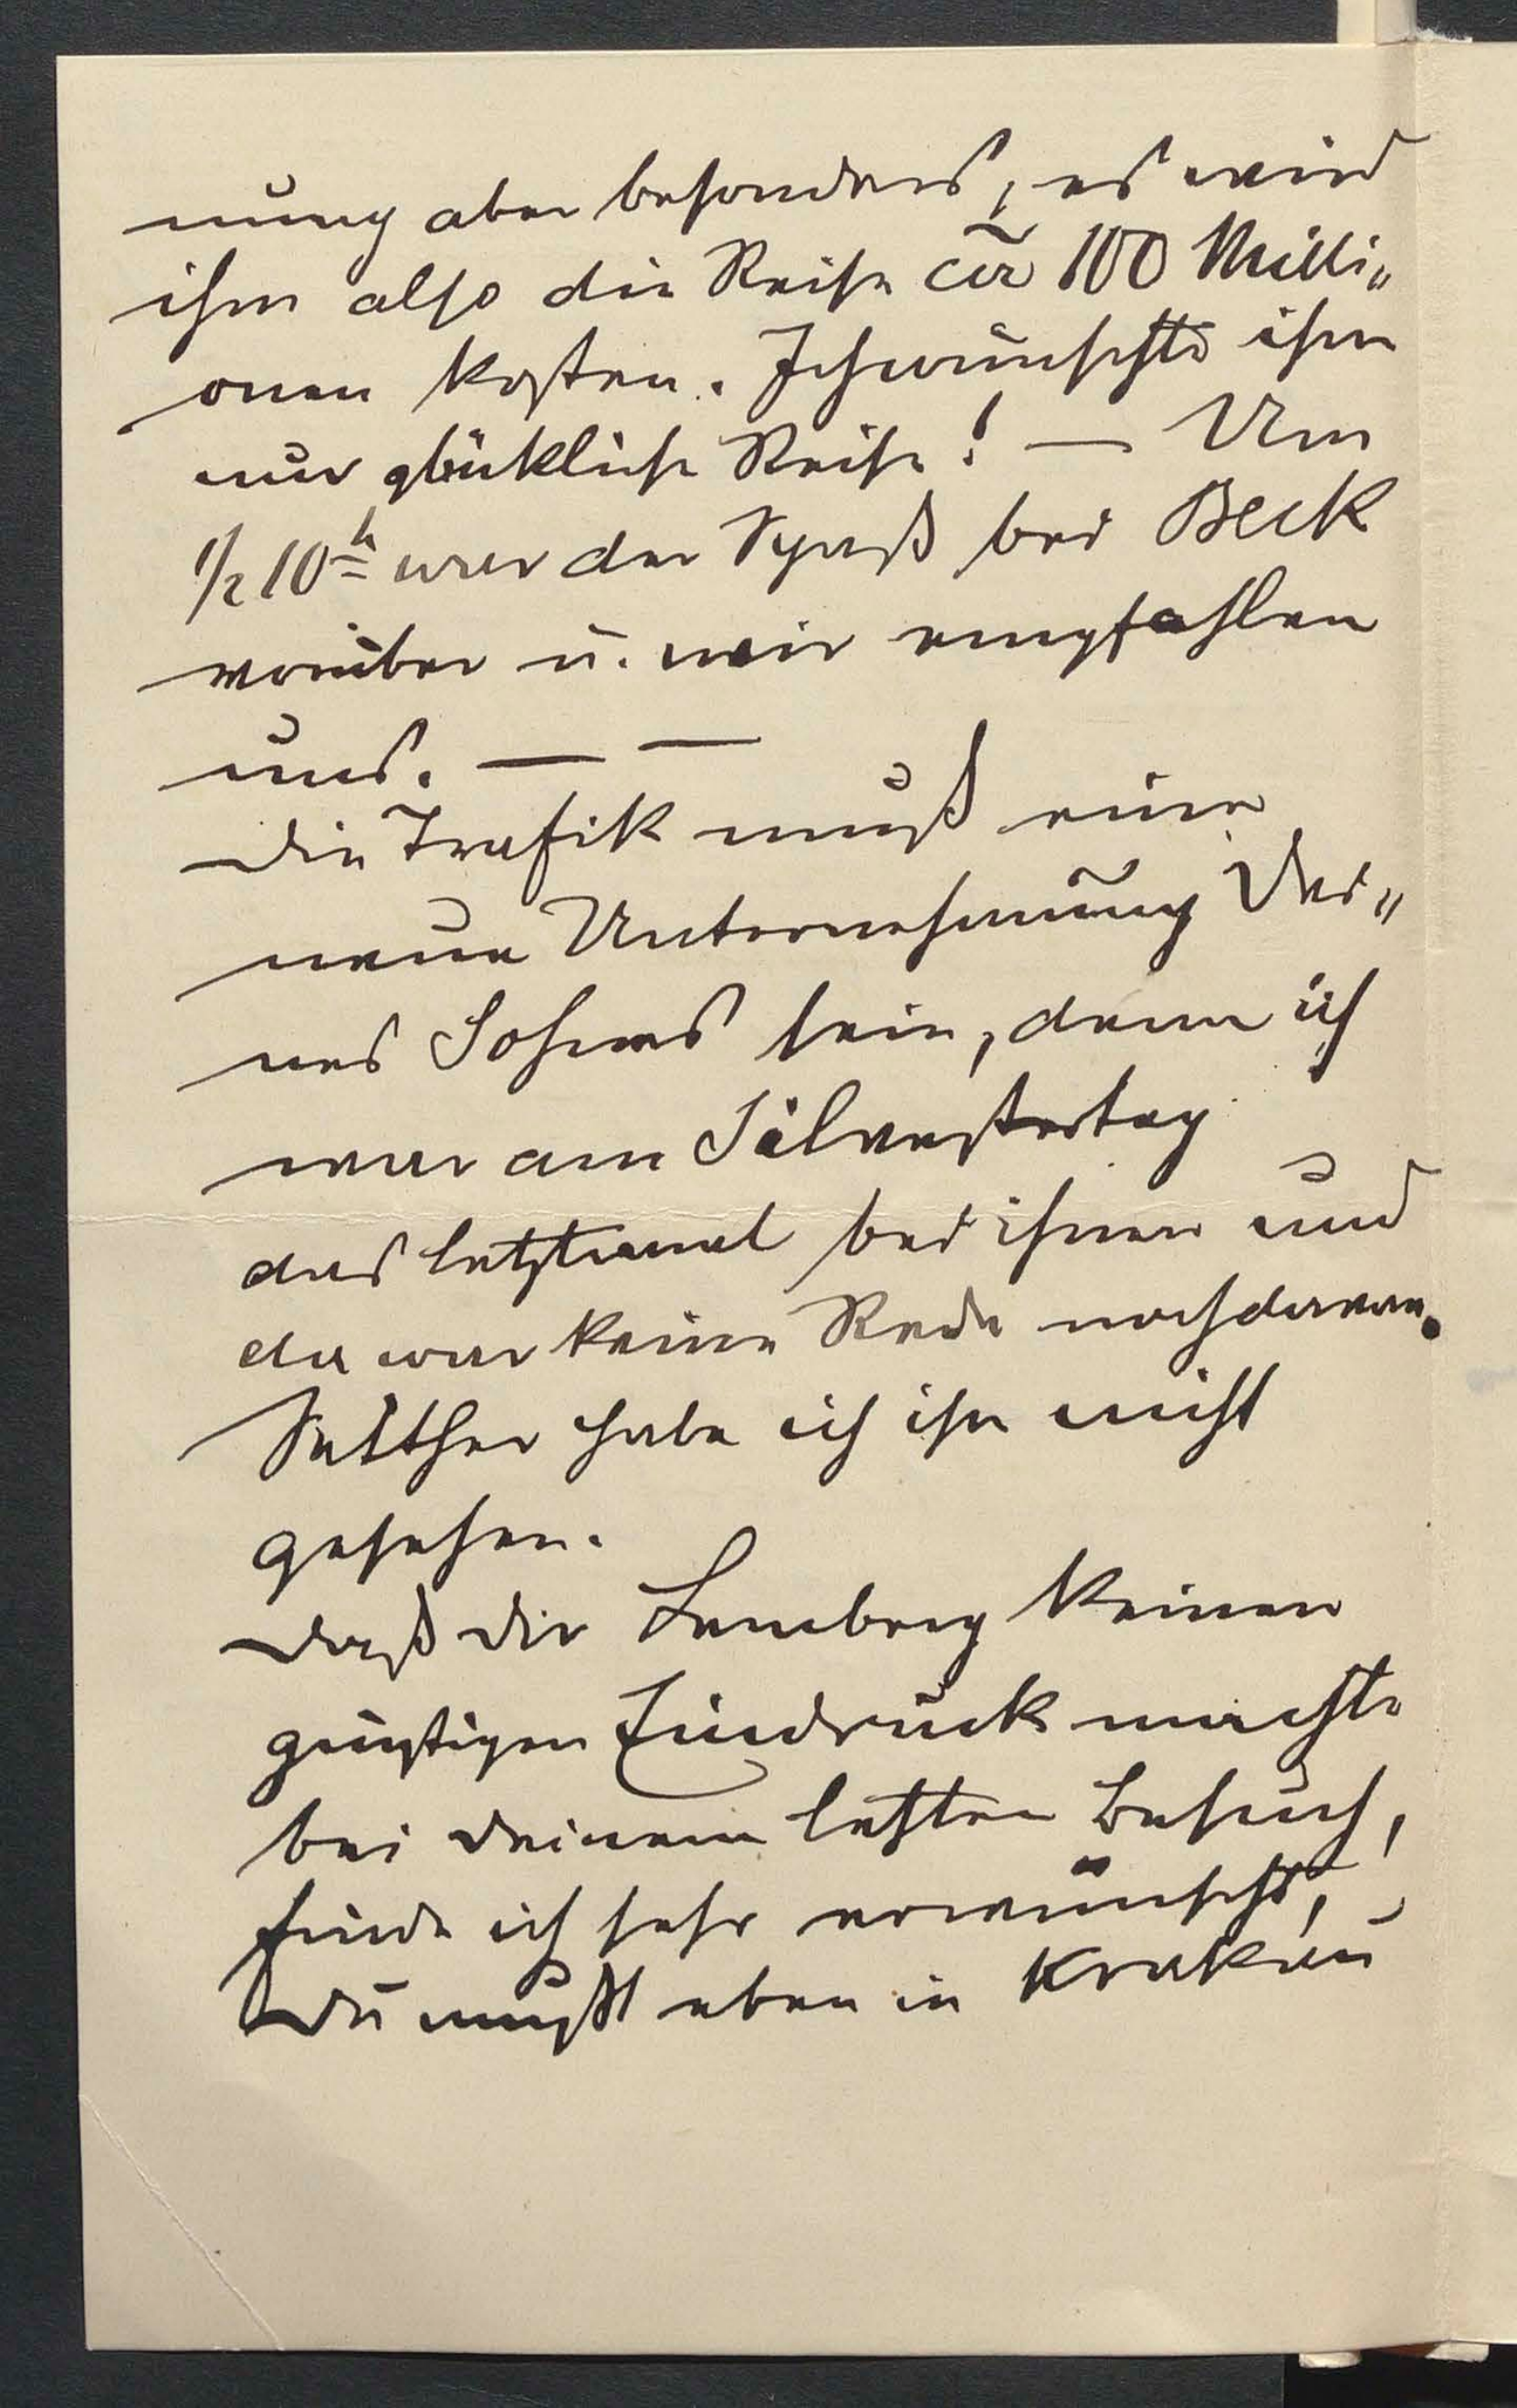 nung aber besonders, es wird
ihm also die Reise cīr 100 Milli„
onen kosten. Ich wünschte ihm
nur glückliche Reise! — Um
1/2 10h war der Spaß bei Beck
vorüber u. wir empfahlen
uns. — —
Die Trafik muß eine
neue Unternehmung Dei„
nes Sohnes sein, denn ich
war am Silvestertag
das letztemal bei ihnen und
da war keine Rede noch davon.
Seither habe ich ihn nicht
gesehen.
Daß Dir Lemberg keinen
günstigen Eindruck machte
bei Deinem letzten Besuch,
finde ich sehr erwünscht,
Du mußt eben in Krakau